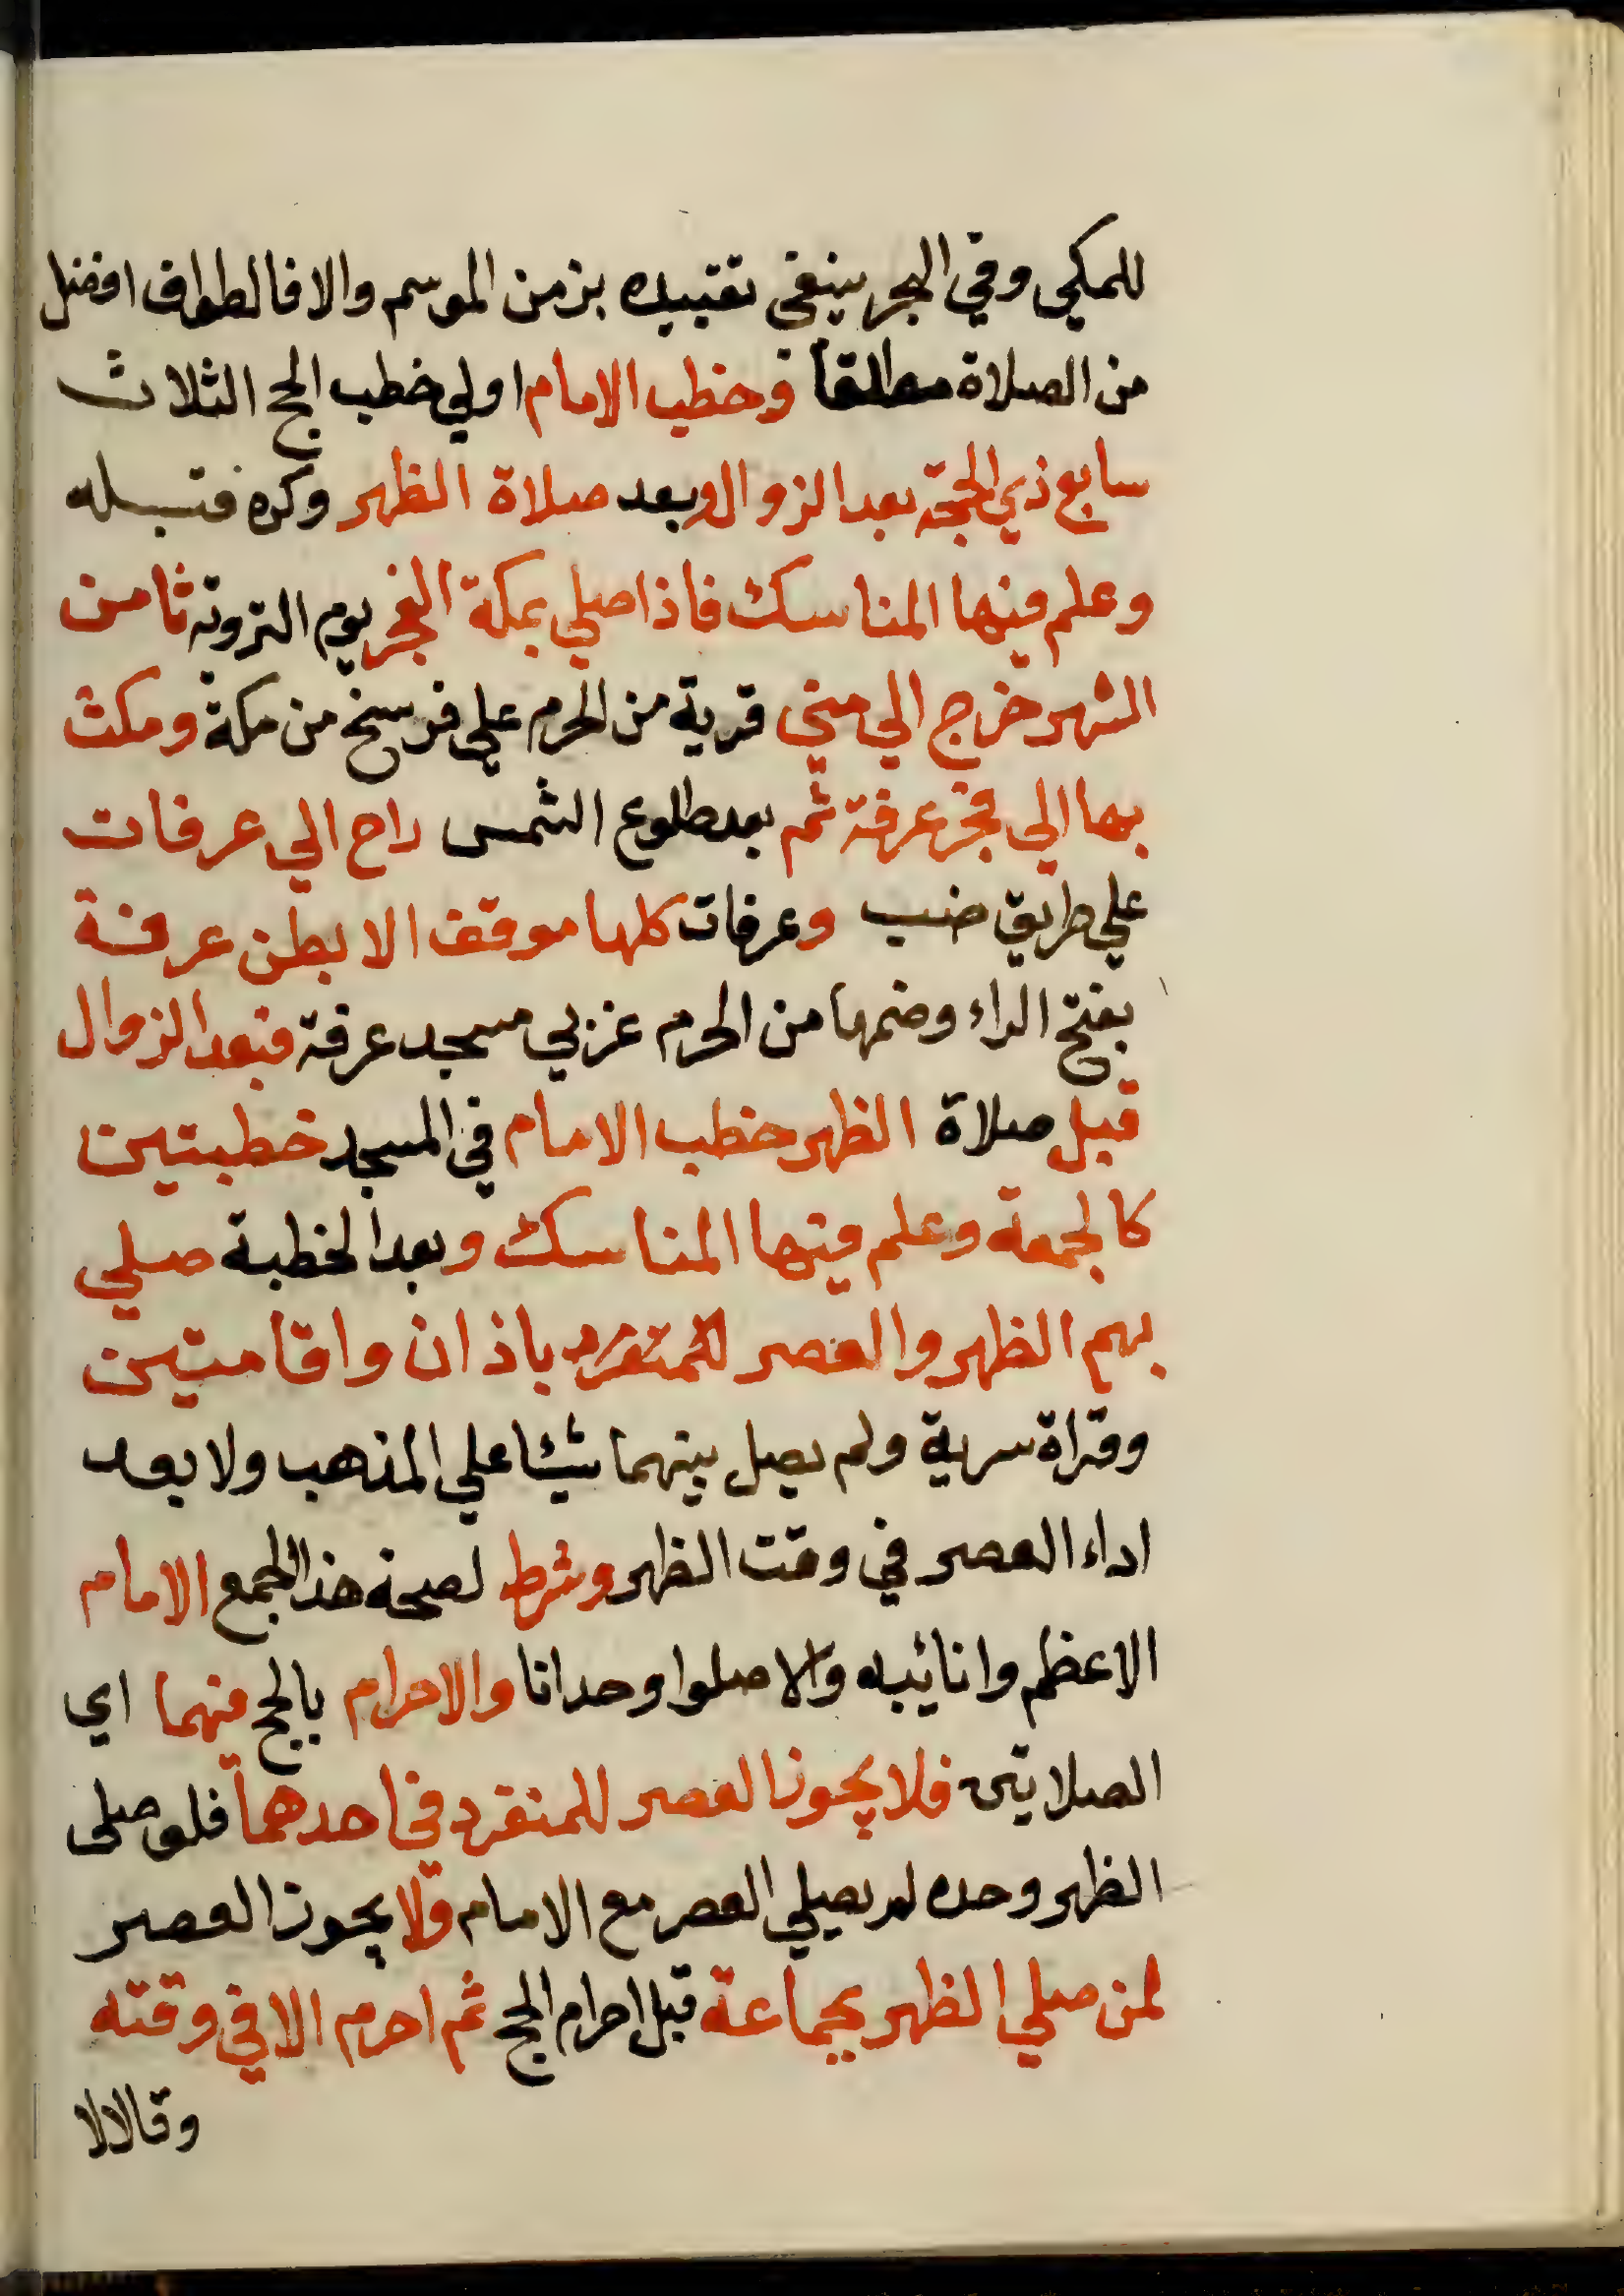 للمكي وفي البحر ينبغي تقييده بزمن الموسم والا فالطواف افضل
من الصلاة مطلقا وخطب الامام اولي خطب الحج الثلاث
سابع ذي الحجة بعد الزوال وبعد صلاة الظهر وكره قبله
وعلم فيها المناسك فاذا صلي بمكة الفجر يوم التروية ثامن
الشهر خرج الي مني قرية من الحرم علي فرسخ من مكة ومكث
بها الي فجر عرفة ثم بعد طلوع الشمس راح الي عرفات
علي طريق ضب وعرفات كلها موقف الا بطن عرفة
بفتح الراء وضمها من الحرم غربي مسجد عرفة فبعد الزوال
قبل صلاة الظهر خطب الامام في المسجد خطبتين
كالجمعة وعلم فيها المناسك وبعد الخطبة صلي
بهم الظهر والعصر باذان واقامتين
وقراة سرية ولم يصل بينهما شيئا علي المذهب ولا بعد
اداء العصر في وقت الظهر وشرط لصحة هذا الجمع الامام
الاعظم وانائبه والا صلوا وحدانا والاحرام بالحج فيهما اي
الصلاتين فلا يجوز العصر للمنفرد في احدهما فلو صلى
الظهر وحده لم يصلي العصر مع الامام ولا يجوز العصر
لمن صلي الظهر بجماعة قبل احرام الحج ثم احرم الا في وقته
وقالالا